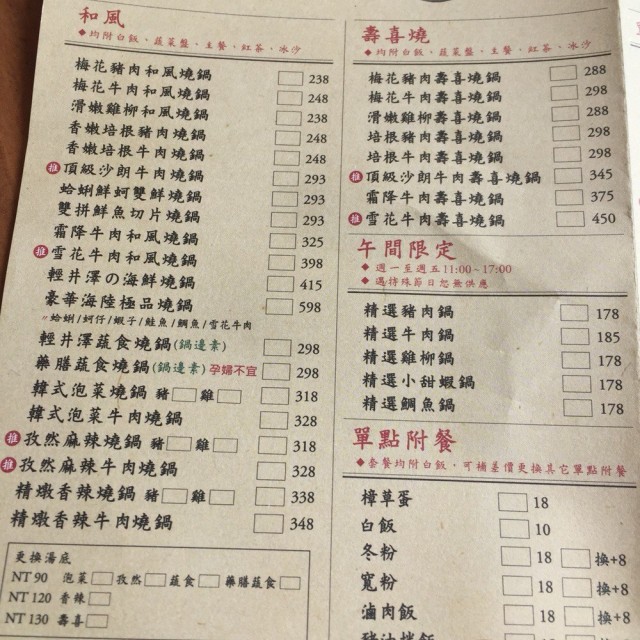 和風
◆均附白飯、蔬菜盤、主餐、紅茶、冰沙
梅花豬肉和風燒鍋 238
梅花牛肉和風燒鍋 248
滑嫩雞柳和風燒鍋 238
香嫩培根豬肉燒鍋 248
香嫩培根牛肉燒鍋 248
推 頂級沙朗牛肉燒鍋 293
蛤蜊鮮蚵雙鮮燒鍋 293
雙拼鮮魚切片燒鍋 293
霜降牛肉和風燒鍋 325
推 雪花牛肉和風燒鍋 398
輕井澤の海鮮燒鍋 415
豪華海陸極品燒鍋 598
〃蛤蜊/蚵仔/蝦子/鮭魚/鯛魚/雪花牛肉
輕井澤蔬食燒鍋(鍋邊素) 298
藥膳蔬食燒鍋(鍋邊素)孕婦不宜 298
韓式泡菜燒鍋 豬 雞 318
韓式泡菜牛肉燒鍋 328
推 孜然麻辣燒鍋 豬 雞 318
推 孜然麻辣牛肉燒鍋 328
精燉香辣燒鍋 豬 雞 338
精燉香辣牛肉燒鍋 348
更換湯底
NT 90 泡菜 孜然 蔬食 藥膳蔬食
NT 120 香辣
NT 130 壽喜
壽喜燒
◆均附白飯、蔬菜盤、主餐、紅茶、冰沙
梅花豬肉壽喜燒鍋 288
梅花牛肉壽喜燒鍋 298
滑嫩雞柳壽喜燒鍋 288
培根豬肉壽喜燒鍋 298
培根牛肉壽喜燒鍋 298
推 頂級沙朗牛肉壽喜燒鍋 345
霜降牛肉壽喜燒鍋 375
推 雪花牛肉壽喜燒鍋 450
午間限定
◆週一至週五11:00~17:00
◆遇特殊節日恕無供應
精選豬肉鍋 178
精選牛肉鍋 185
精選雞柳鍋 178
精選小甜蝦鍋 178
精選鯛魚鍋 178
單點附餐
◆套餐均附白飯，可補差價更換其它單點附餐
樟草蛋 18
白飯 10
冬粉 18 換+8
寬粉 18 換+8
滷肉飯 18 換+8
豬油拌飯